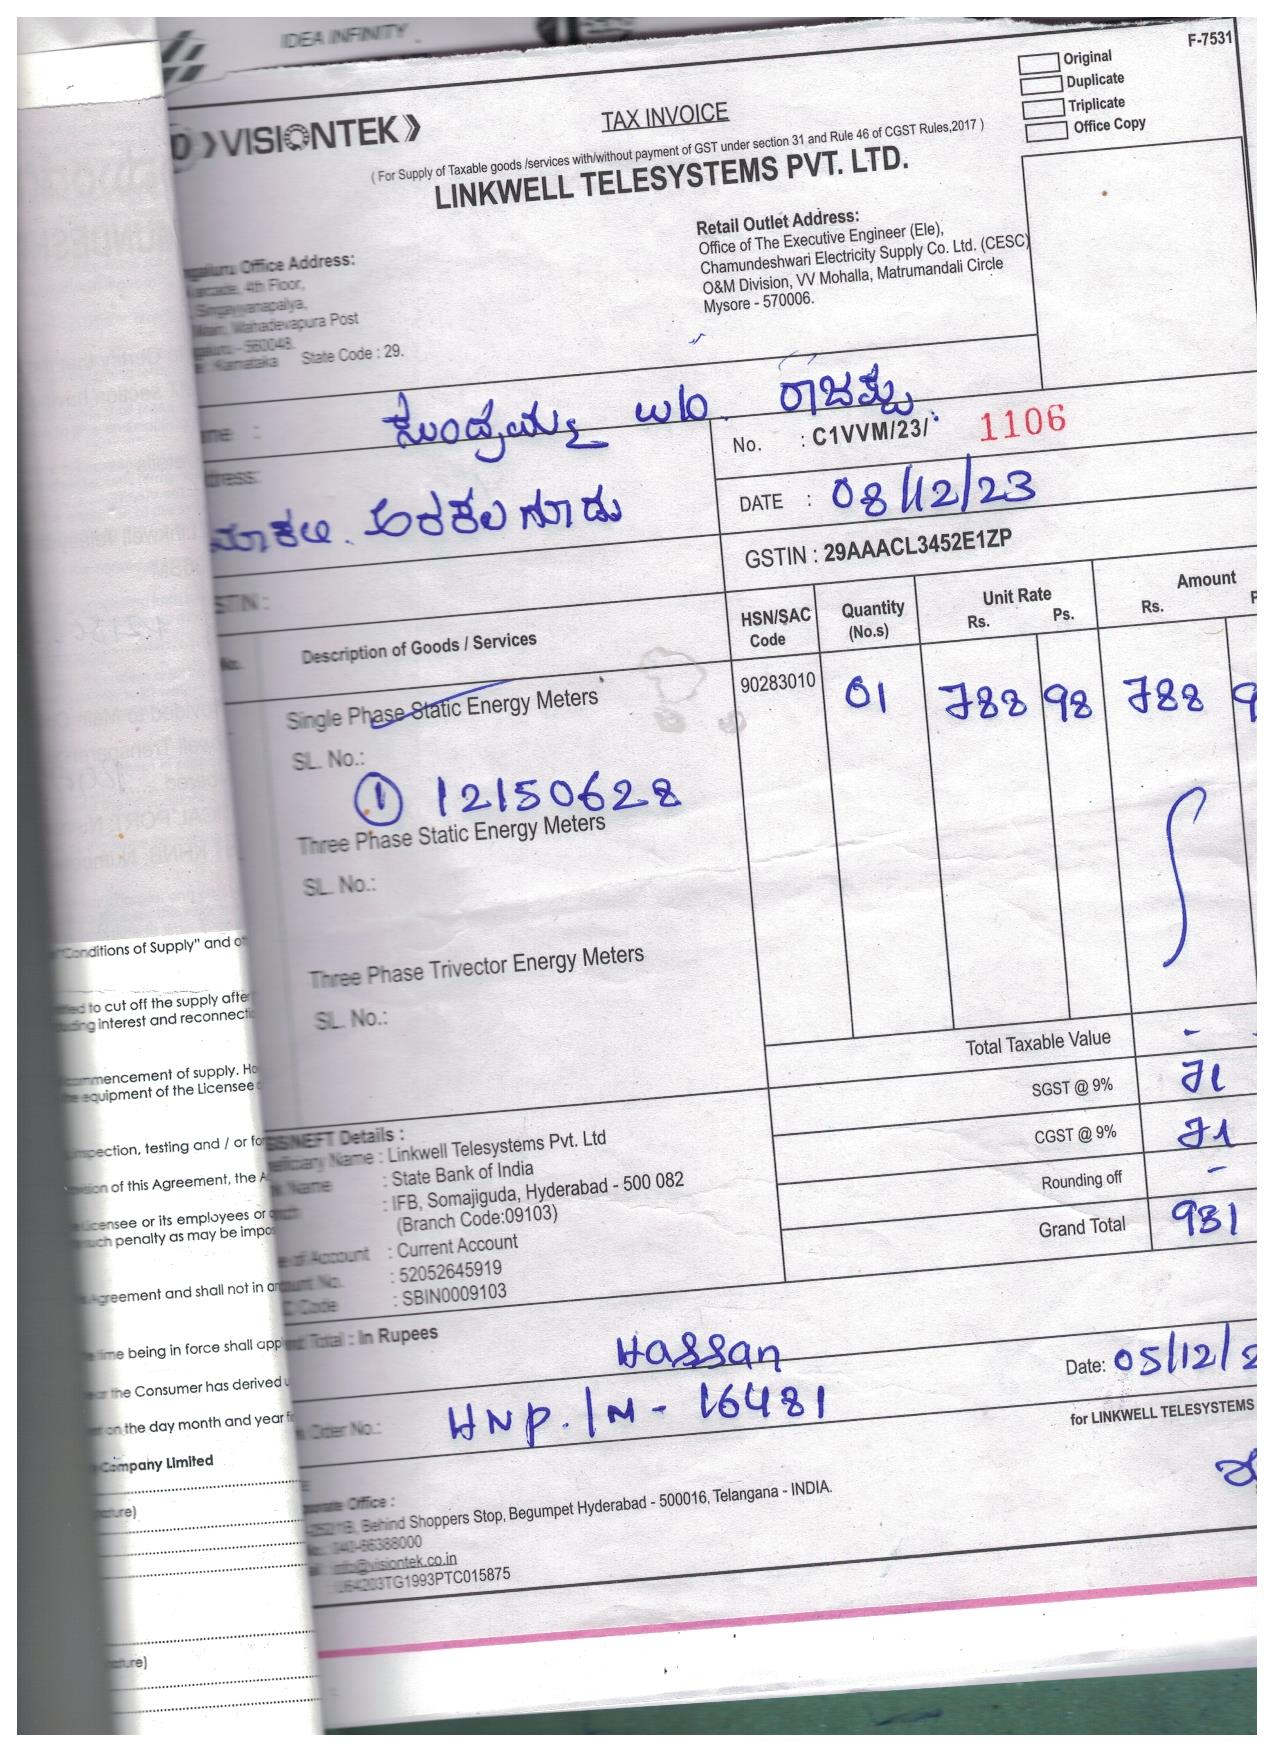 IDEA INFINITY
F-7531
Original
Duplicate
Triplicate
Office Copy
VISIONTEK
TAX INVOICE
( For Supply of Taxable goods /services with/without payment of GST under section 31 and Rule 46 of CGST Rules,2017 )
LINKWELL TELESYSTEMS PVT. LTD.
Retail Outlet Address:
Office of The Executive Engineer (Ele),
Chamundeshwari Electricity Supply Co. Ltd. (CESC)
O&M Division, VV Mohalla, Matrumandali Circle
Mysore - 570006.
Office Address:
4th Floor,
Mahadevapura Post
560048.
Karnataka State Code : 29.
W/O.
No. : C1VVM/23/ 1106
DATE : 08/12/23
ಅರಕಲಗೂಡು
GSTIN : 29AAACL3452E1ZP
Description of Goods / Services
HSN/SAC Code
Quantity (No.s)
Unit Rate Rs. Ps.
Amount Rs.
Single Phase Static Energy Meters 90283010 01 788 98 788
SL. No.:
1 12150628
Three Phase Static Energy Meters
SL. No.:
Three Phase Trivector Energy Meters
SL. No.:
Total Taxable Value -
SGST @ 9% 71
CGST @ 9% 71
Rounding off -
Grand Total 931
NEFT Details :
Name : Linkwell Telesystems Pvt. Ltd
Name : State Bank of India
: IFB, Somajiguda, Hyderabad - 500 082
(Branch Code:09103)
of Account : Current Account
No. : 52052645919
Code : SBIN0009103
Total : In Rupees
Hassan
Date: 05/12/2
Order No.: HNP. /M - 16481
for LINKWELL TELESYSTEMS
Office :
Behind Shoppers Stop, Begumpet Hyderabad - 500016, Telangana - INDIA.
040-66388000
info@visiontek.co.in
U64203TG1993PTC015875
"Conditions of Supply" and
to cut off the supply after
interest and reconnecti
commencement of supply.
equipment of the Licensee
inspection, testing and / or
of this Agreement, the
Licensee or its employees or
such penalty as may be impo
Agreement and shall not in
time being in force shall
the Consumer has derived
on the day month and year
Company Limited